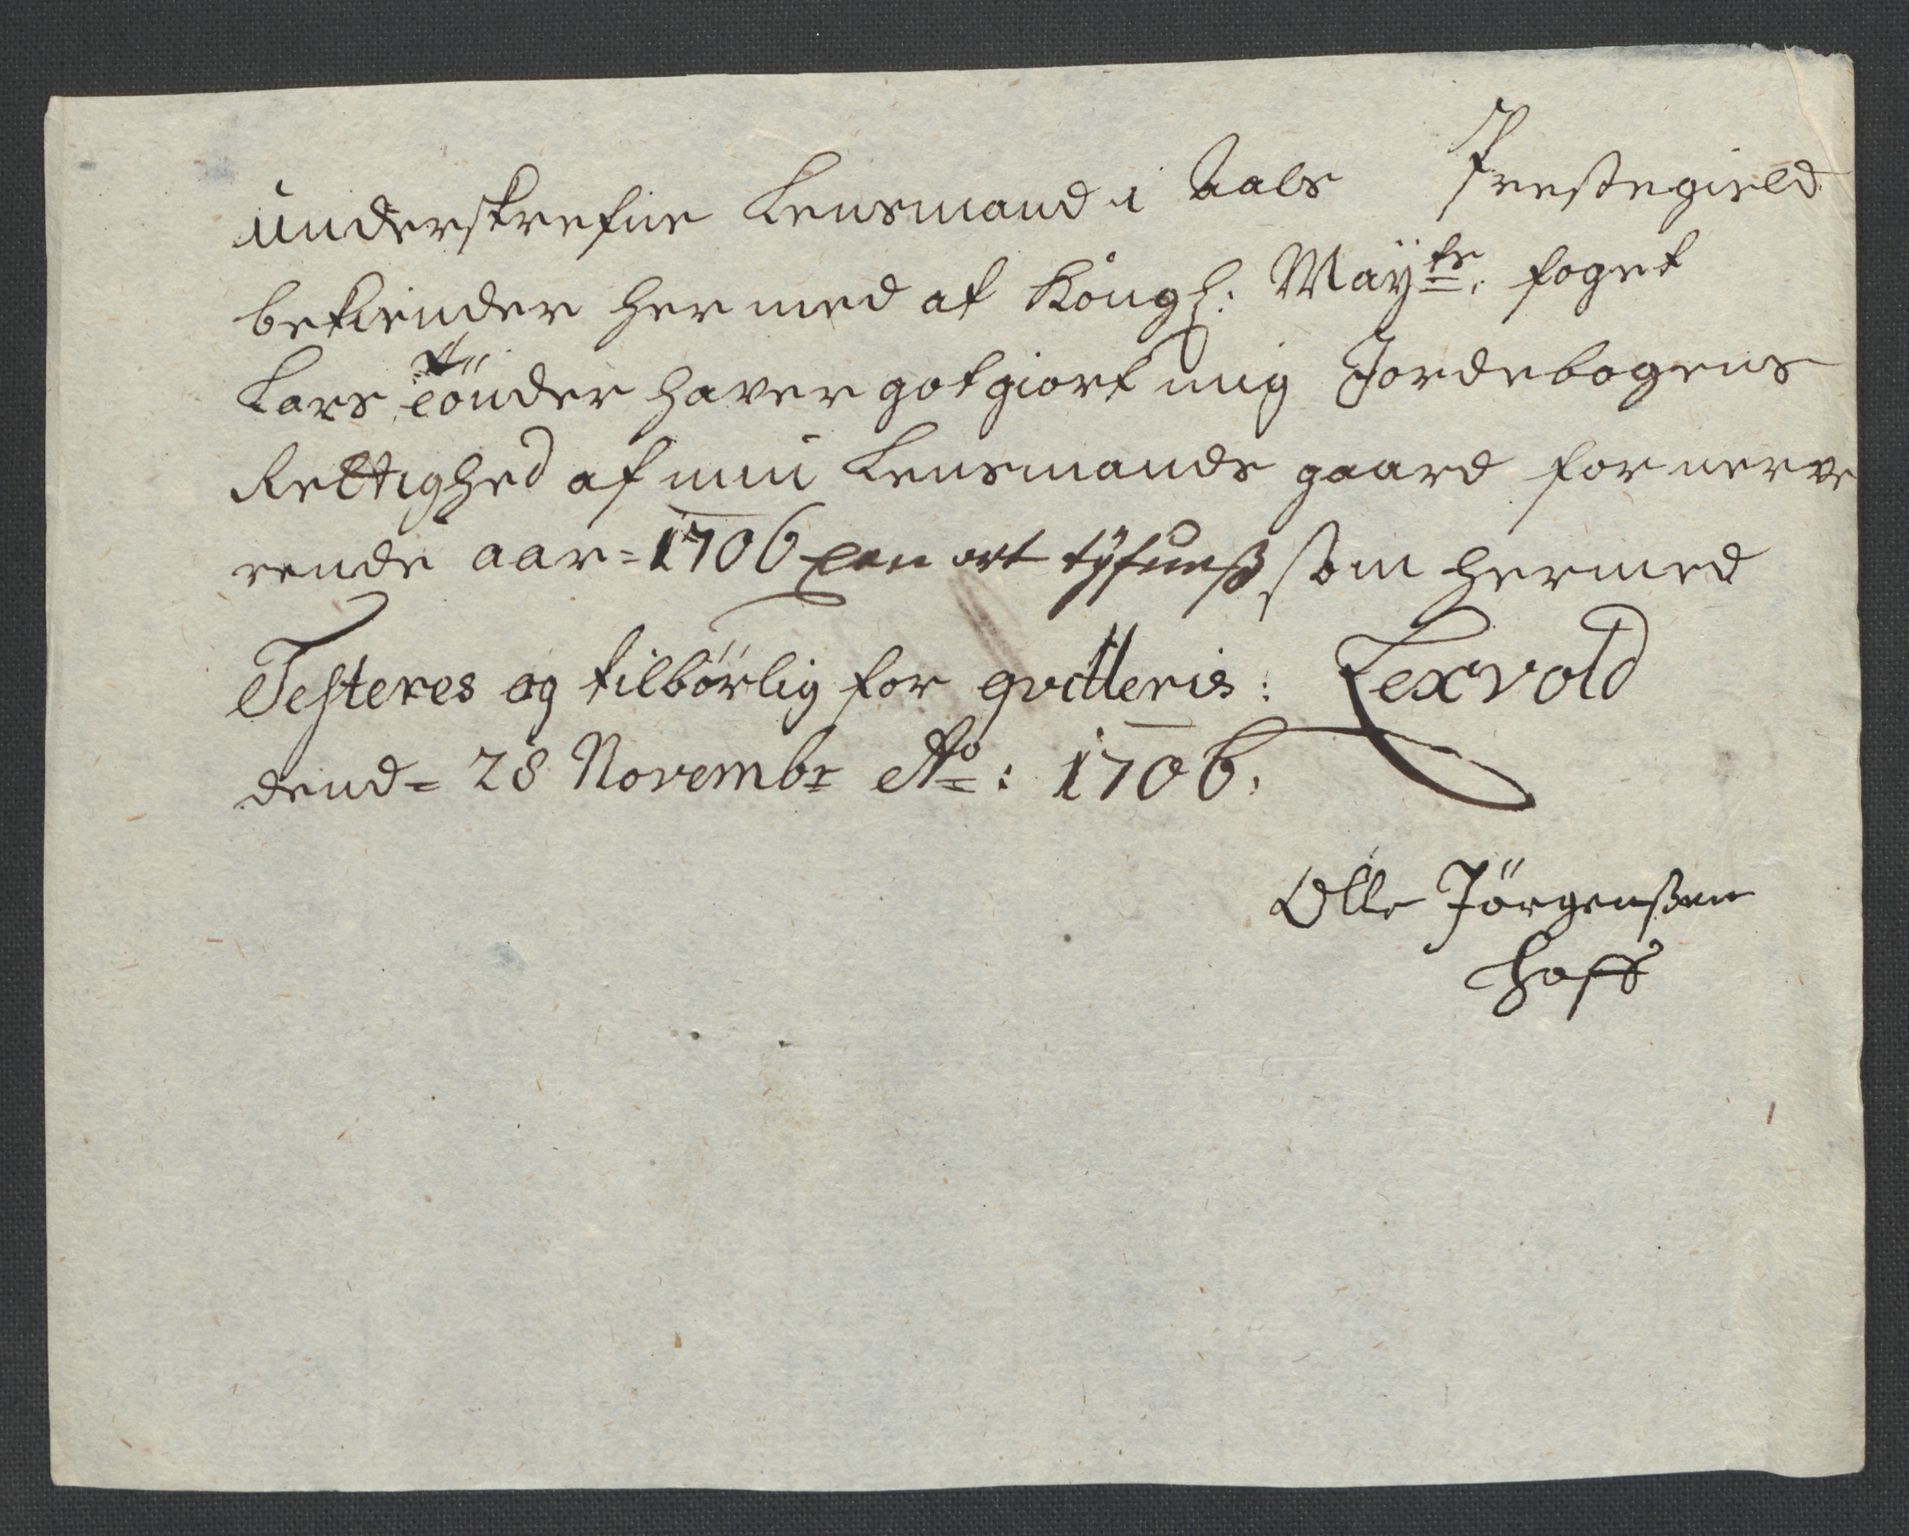 Underskrefne Lensmand i Aals Prestegield
bekiender her med at Kongl: Mayts. foget
Lars Tönder haver got giort mig Jordebogens
Rettighed af min Lensmands gaard for nerve
rende aar = 1706 som hermed
Testeres og tilbörlig for qvitteris: Lexvold
dend = 28 Novembr Ao: 1706.
Olle Jörgenßen
Hoff